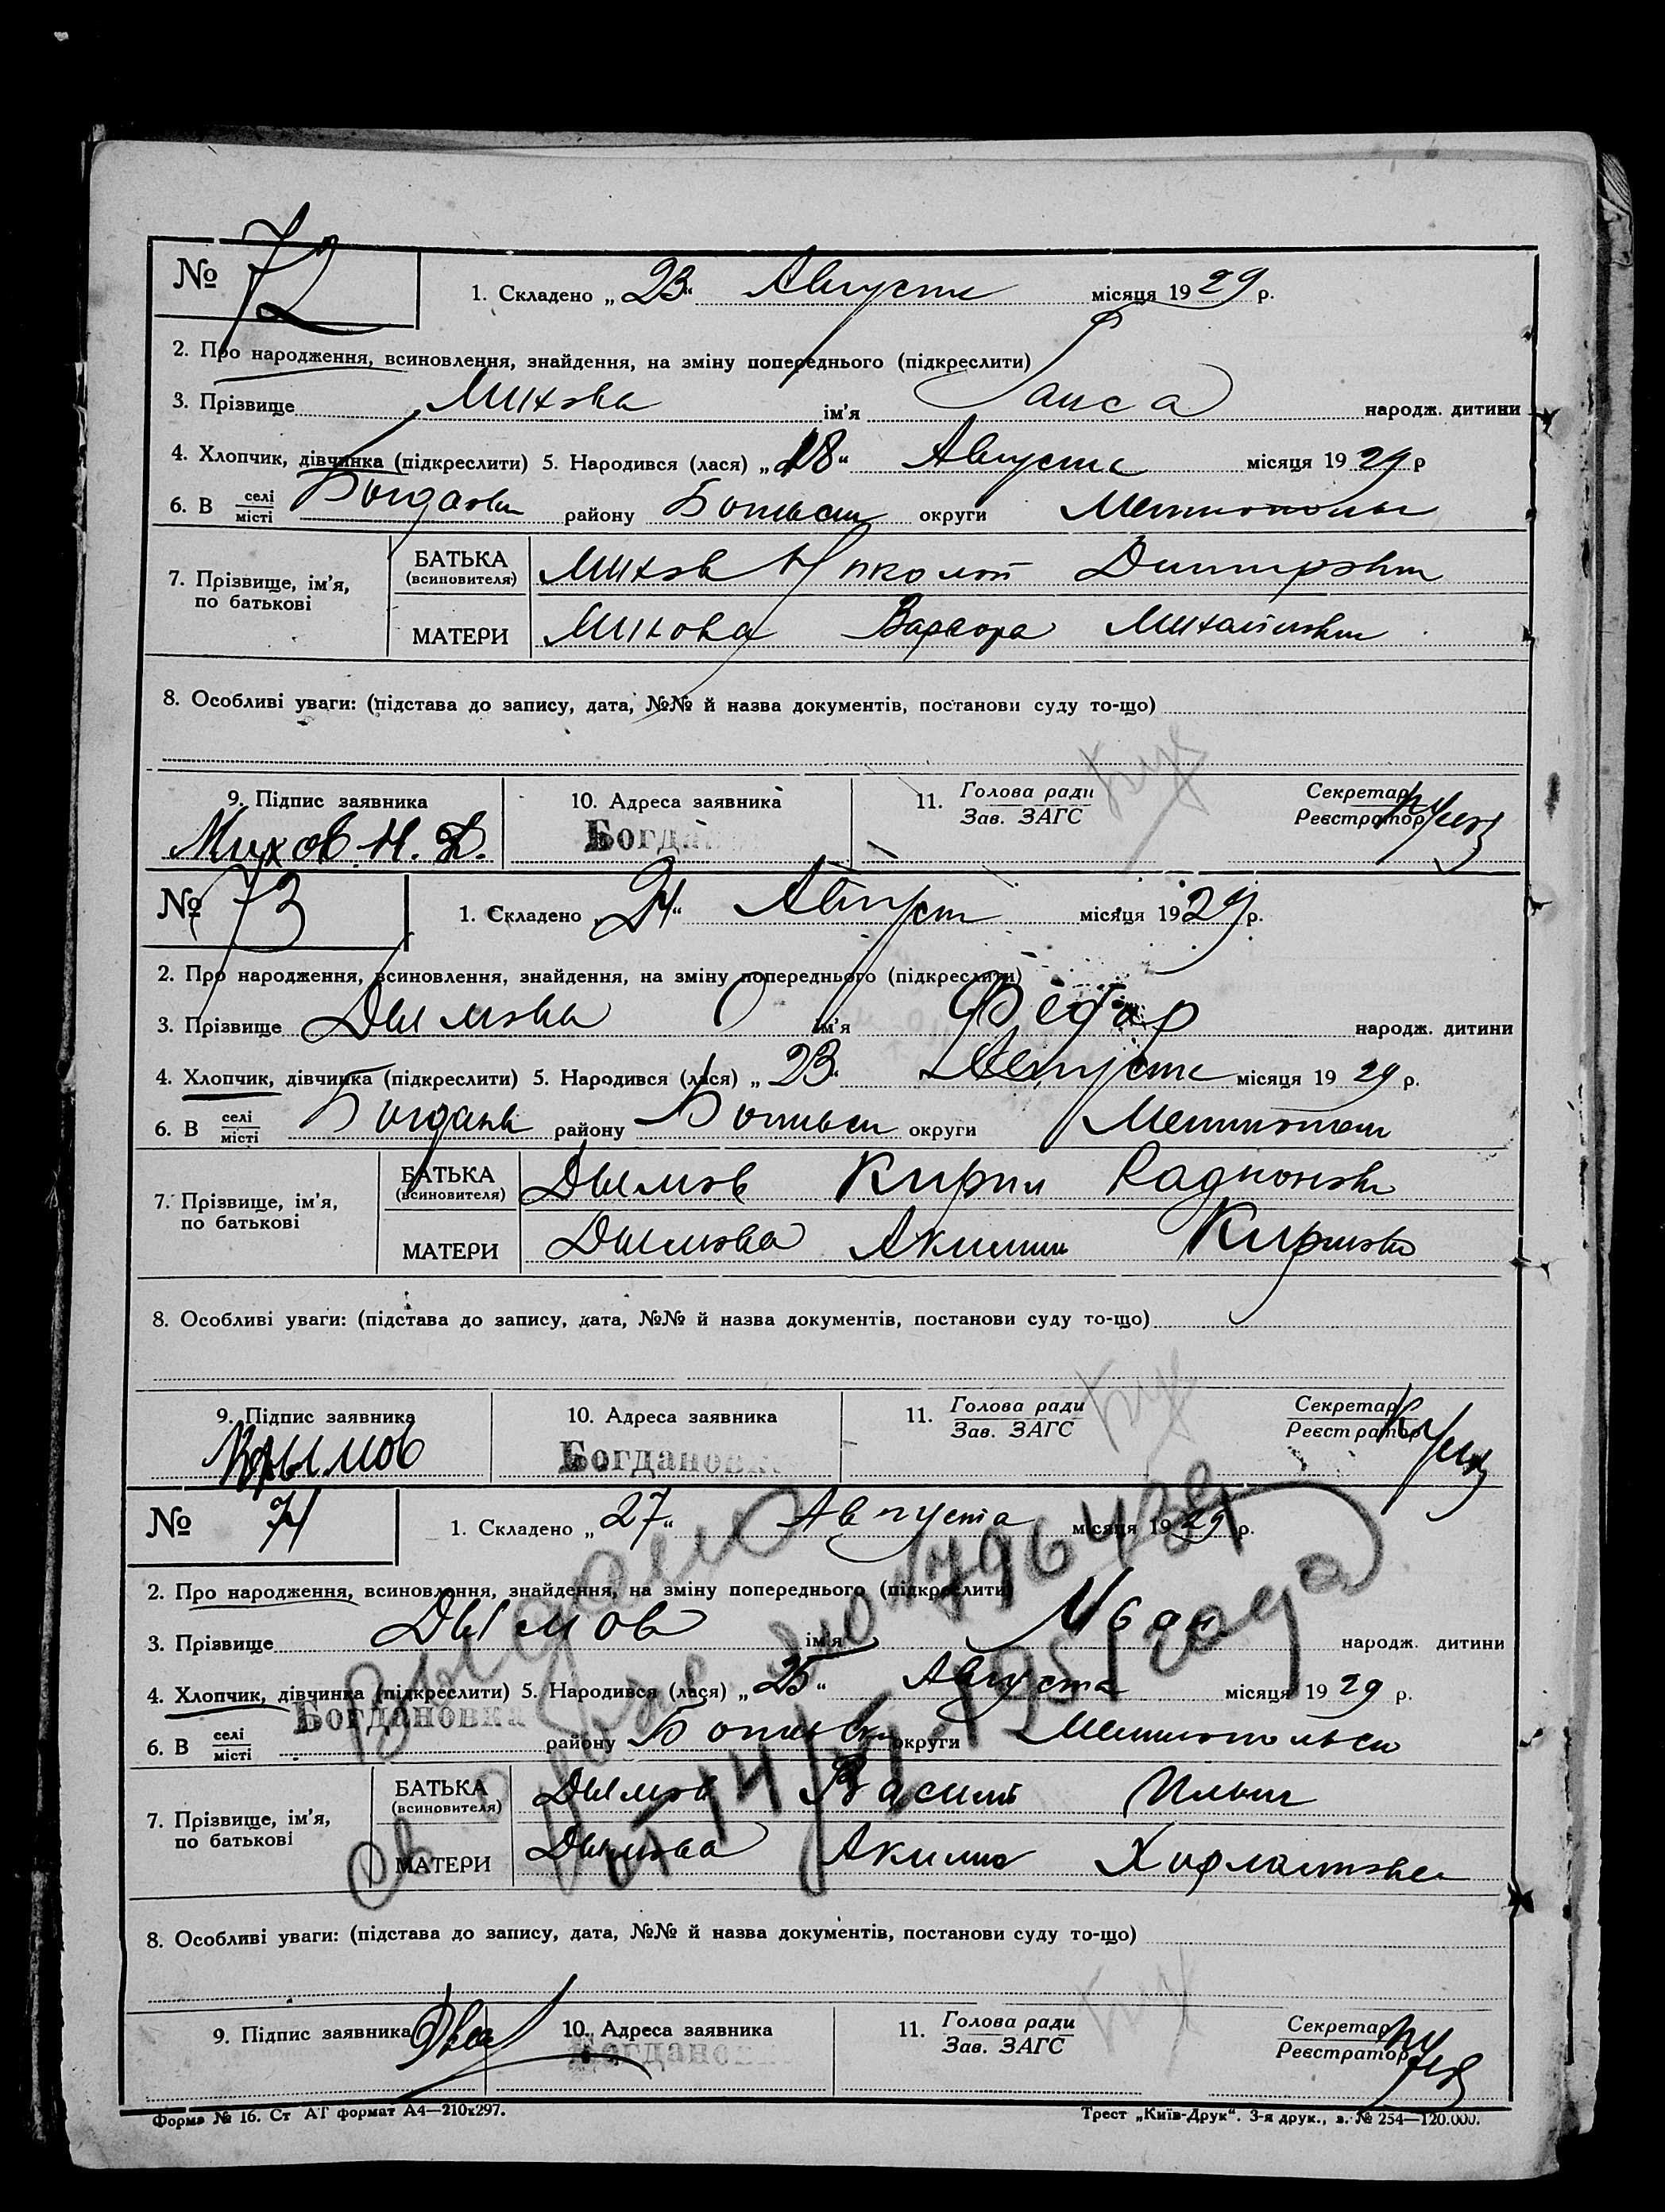 № 72
1. Складено „23“ Августа місяця 1929 р.
2. Про народження, всиновлення, знайдення, на зміну попереднього (підкреслити)
3. Прізвище Михова ім'я Раиса народж. дитини
4. Хлопчик, дівчинка (підкреслити) 5. Народився (лася) „18“ Августа місяця 1929 р
6. В селі місті района Богданов району Ботьевск округи Мелитополь
7. Прізвище, ім'я, по батькові
БАТЬКА (всиновителя) Михов Николай Дмитрович
МАТЕРИ Михова Варвара Михайловн
8. Особливі уваги: (підстава до запису, дата, №№ й назва документів, постанови суду то-що)
9. Підпис заявника 10. Адреса заявника 11. Голова ради Зав. ЗАГС Секретар Реєстратор
Михов Н. Д. Богдан
№ 73
1. Складено „24“ Август місяця 1929 р.
2. Про народження, всиновлення, знайдення, на зміну попереднього (підкреслити)
3. Прізвище Дымова ім'я Федор народж. дитини
4. Хлопчик, дівчинка (підкреслити) 5. Народився (лася) „23“ Августа місяця 1929 р.
6. В селі місті Богданв району Ботьевск округи Мелитопол
7. Прізвище, ім'я, по батькові
БАТЬКА (всиновителя) Дымов Кирил Радионов
МАТЕРИ Дымова Акилин Кирилов
8. Особливі уваги: (підстава до запису, дата, №№ й назва документів, постанови суду то-що)
9. Підпис заявника 10. Адреса заявника 11. Голова ради Зав. ЗАГС Секретар Реєстратор
Дымов Богдановка
№ 74
1. Складено „27“ Августа місяця 1929 р.
2. Про народження, всиновлення, знайдення, на зміну попереднього (підкреслити)
3. Прізвище Дымов ім'я Иван народж. дитини
4. Хлопчик, дівчинка (підкреслити) 5. Народився (лася) „25“ Августа місяця 1929 р.
6. В селі місті Богдановка району Ботьевск округи Мелитопольск
7. Прізвище, ім'я, по батькові
БАТЬКА (всиновителя) Дымов Василий Ильич
МАТЕРИ Дымова Акилина
Выдано
св о рожд
1951 года
8. Особливі уваги: (підстава до запису, дата, №№ й назва документів, постанови суду то-що)
9. Підпис заявника 10. Адреса заявника 11. Голова ради Зав. ЗАГС Секретар Реєстратор
Богдановк
Форма № 16. Ст АТ формат А4—210х297.
Трест „Київ-Друк“. 3-я друк., з. № 254—120.000.